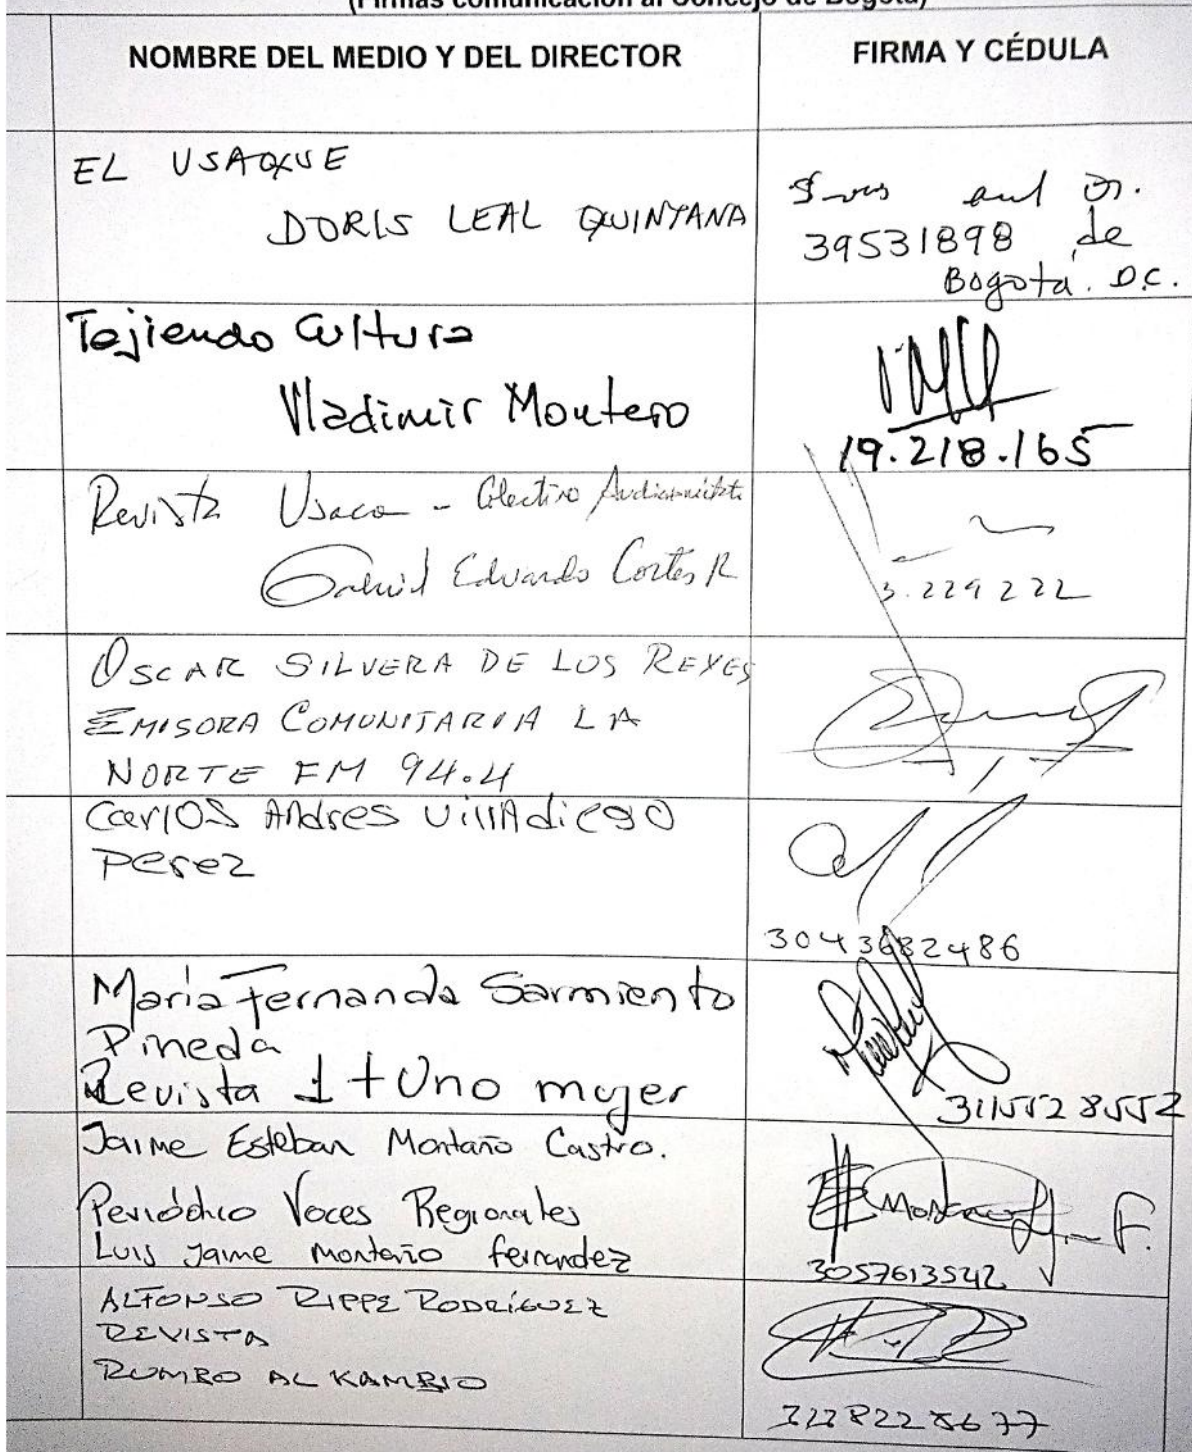 (Firmas comunicación al Concejo de Bogotá)
NOMBRE DEL MEDIO Y DEL DIRECTOR
FIRMA Y CÉDULA
EL USAQUE
DORIS LEAL QUINTANA
39531898 de
Bogotá. D.C.
Tejiendo Cultura
Vladimir Montero
19.218.165
Revista Usaca - Colectivo
Gabriel Eduardo Cortes R
3.229222
OSCAR SILVERA DE LOS REYES
EMISORA COMUNITARIA LA
NORTE FM 94.4
Carlos Andres Villadiego
Perez
3043682486
Maria Fernanda Sarmiento
Pineda
Revista 1 + Uno mujer
3115528552
Jaime Esteban Montaño Castro.
Periódico Voces Regionales
Luis Jaime Montaño fernandez
3057613542
ALFONSO RIPPE RODRÍGUEZ
REVISTA
RUMBO AL KAMBIO